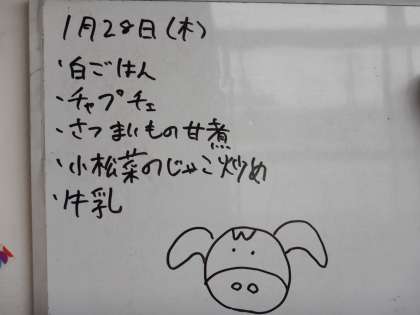 1月28日(木)
・白ごはん
・チャプチェ
・さつまいもの甘煮
・小松菜のじゃこ炒め
・牛乳